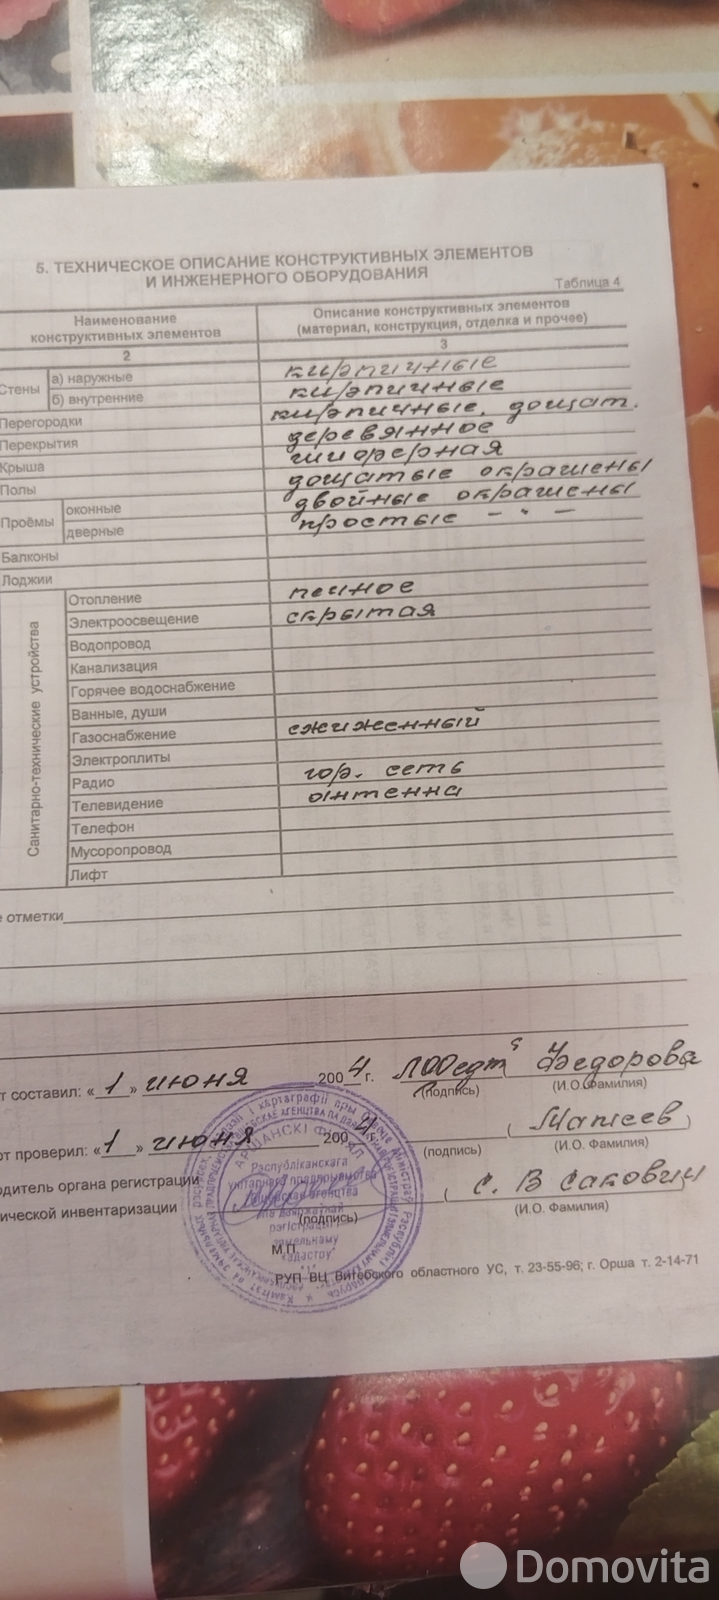 5. ТЕХНИЧЕСКОЕ ОПИСАНИЕ КОНСТРУКТИВНЫХ ЭЛЕМЕНТОВ
И ИНЖЕНЕРНОГО ОБОРУДОВАНИЯ
Таблица 4
Наименование конструктивных элементов
Описание конструктивных элементов (материал, конструкция, отделка и прочее)
2 3
Стены а) наружные кирпичные
б) внутренние кирпичные
Перегородки кирпичные, дощат.
Перекрытия деревянное
Крыша шиферная
Полы дощатые окрашены
Проёмы оконные двойные окрашены
дверные простые – " –
Балконы
Лоджии
Санитарно-технические устройства
Отопление печное
Электроосвещение скрытая
Водопровод
Канализация
Горячее водоснабжение
Ванные, души
Газоснабжение сжиженный
Электроплиты
Радио гор. сеть
Телевидение антенна
Телефон
Мусоропровод
Лифт
е отметки
т составил: « 1 » июня 2004 г. Федорова
(подпись) (И.О. Фамилия)
от проверил: « 1 » июня 2004 г. ( )
(подпись) (И.О. Фамилия)
водитель органа регистрации
ической инвентаризации ( С. В Сакович
(подпись) (И.О. Фамилия)
М.П.
АРШАНСКІ ФІЛІЯЛ
Рэспубліканскага
унітарнага прадпрыемства
па дзяржаўнай
рэгістрацыі і
зямельнаму
кадастру"
РУП ВЦ Витебского областного УС, т. 23-55-96; г. Орша т. 2-14-71
Domovita